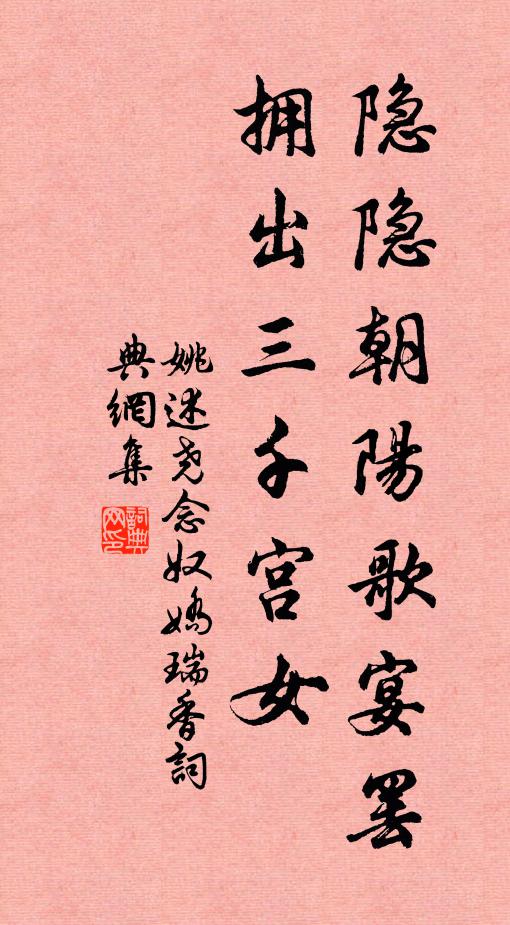 隐隐朝陽歌宴罢
拥出三千宫女
姚述尧念奴嬌瑞香詞
典網集
詞典网印